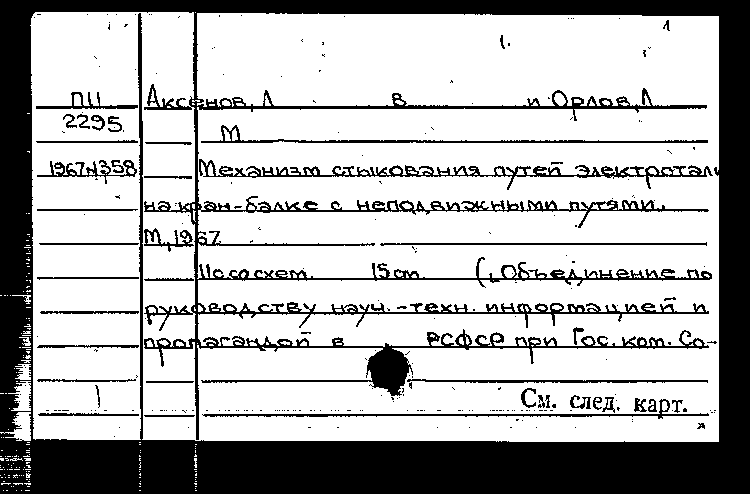 1. 1
ПII Аксенов, Л В и Орлов, Л
2295 М
1967№358 Механизм стыкования путей электротали
на кран-балке с неподвижными путями.
М, 1967
11с со схем. 15 см. („Объединение по
руководству науч.-техн. информацией и
пропагандой в РСФСР при Гос. ком. Со-
См. след. карт.